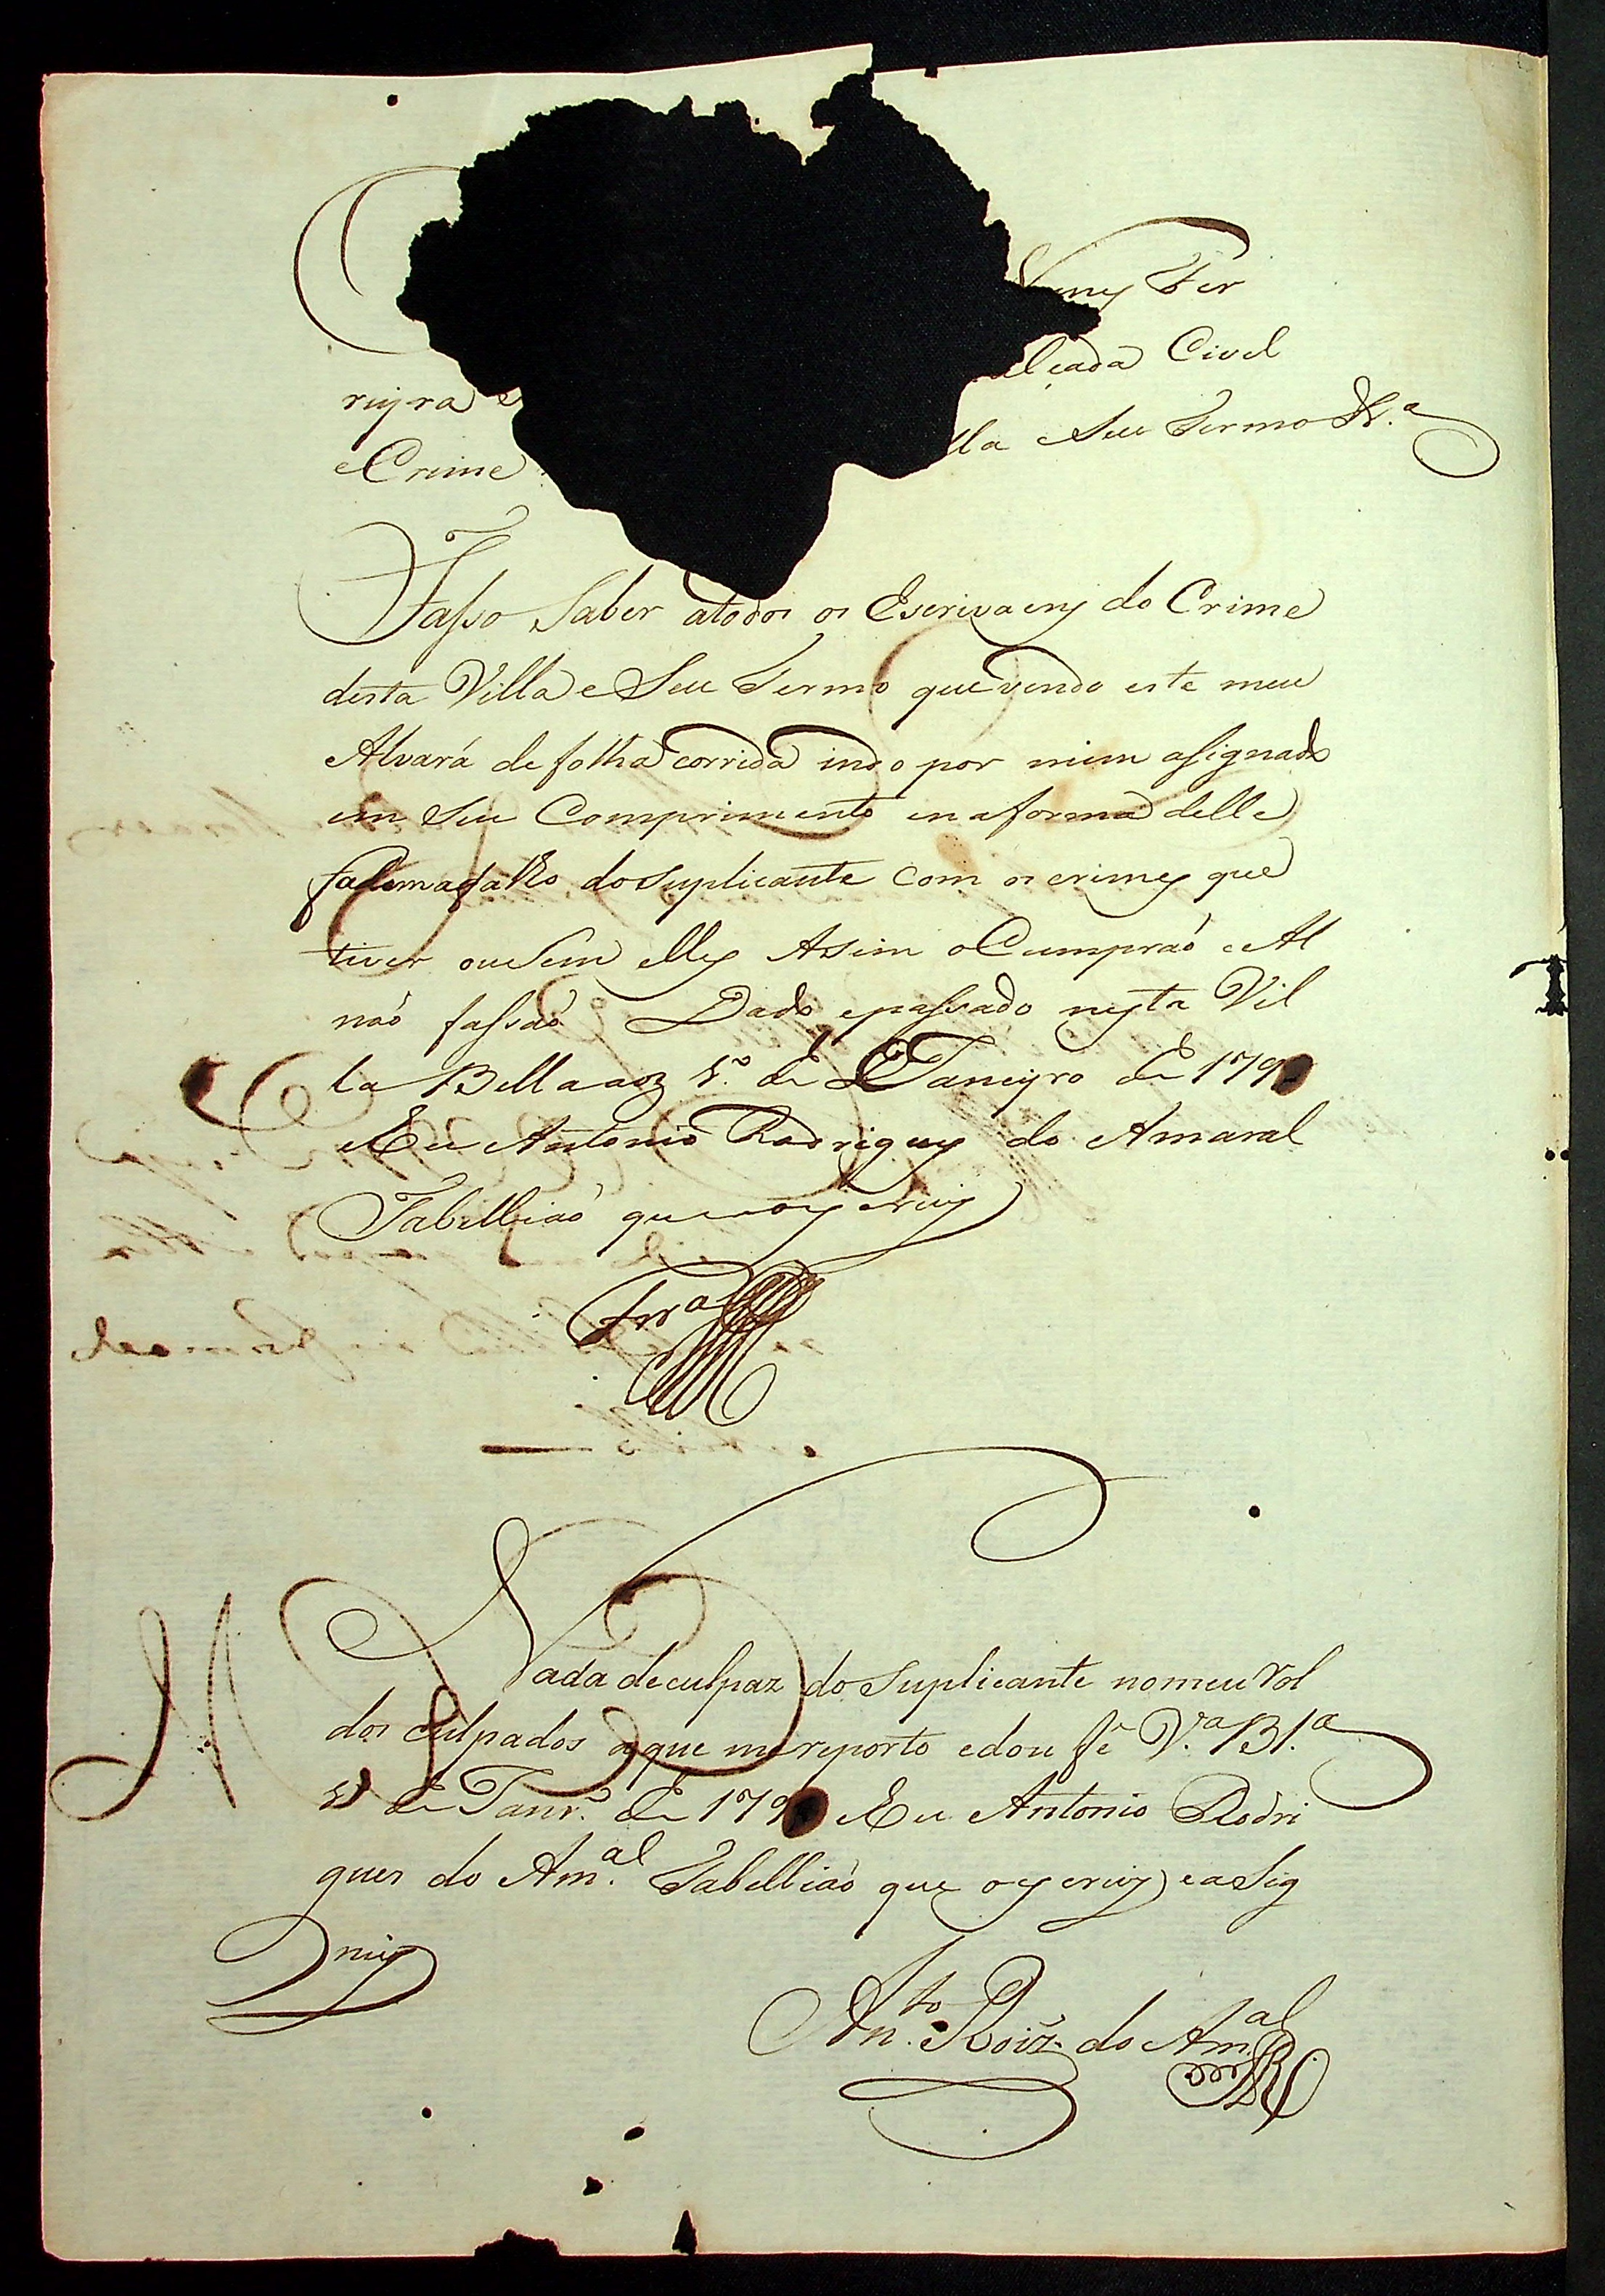 Fer
reyra e
alçada Civel
e Crime
lla e Seu Termo &.ª
Fasso Saber atodos os Escrivaens do Crime
desta Villa e Seu Termo que vendo este meu
Alvará de folha corrida indo por mim asignado
em Seu Comprimento enaforma delle
do suplicante com os crimes que
tiver ou Sem elles Assim o Cumpraó e Al
naó fassaó Dado epassado nesta Vil
la Bella aoz de Janeyro de 179
Eu Antonio Rodrigues do Amaral
Tabelliaó que o escrivy
Frrª
Nada de culpaz do suplicante nomeu Rol
dos culpados a que me reporto e dou fé V.ª B.ª
de Janr.º de 179 Eu Antonio Rodri
gues do Am.al Tabelliaó que o escrivy e aSig
niey
An.to Roiz do Am.al